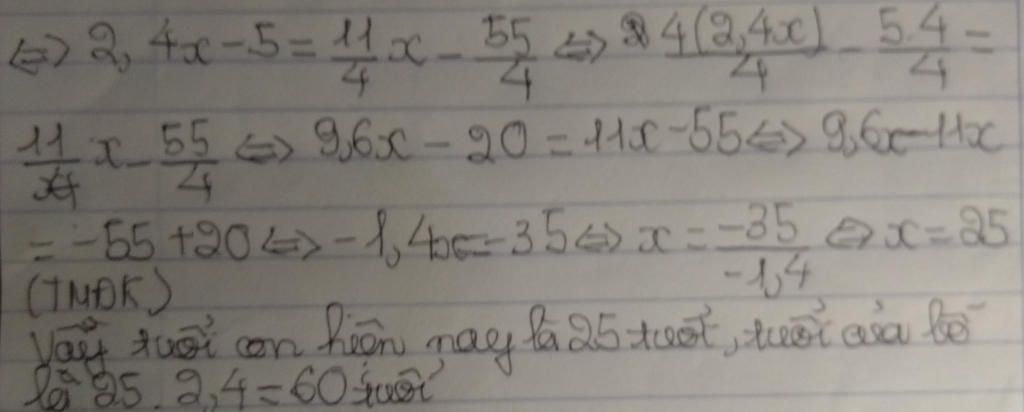 ⇔ 2,4x - 5 = 11/4 x - 55/4 ⇔ 4(2,4x)/4 - 5.4/4 =
11/4 x - 55/4 ⇔ 9,6x - 20 = 11x - 55 ⇔ 9,6x - 11x
= -55 + 20 ⇔ -1,4x = -35 ⇔ x = -35/-1,4 ⇔ x = 25
(TMĐK)
Vậy tuổi con hiện nay là 25 tuổi, tuổi của bố
là 25 . 2,4 = 60 tuổi